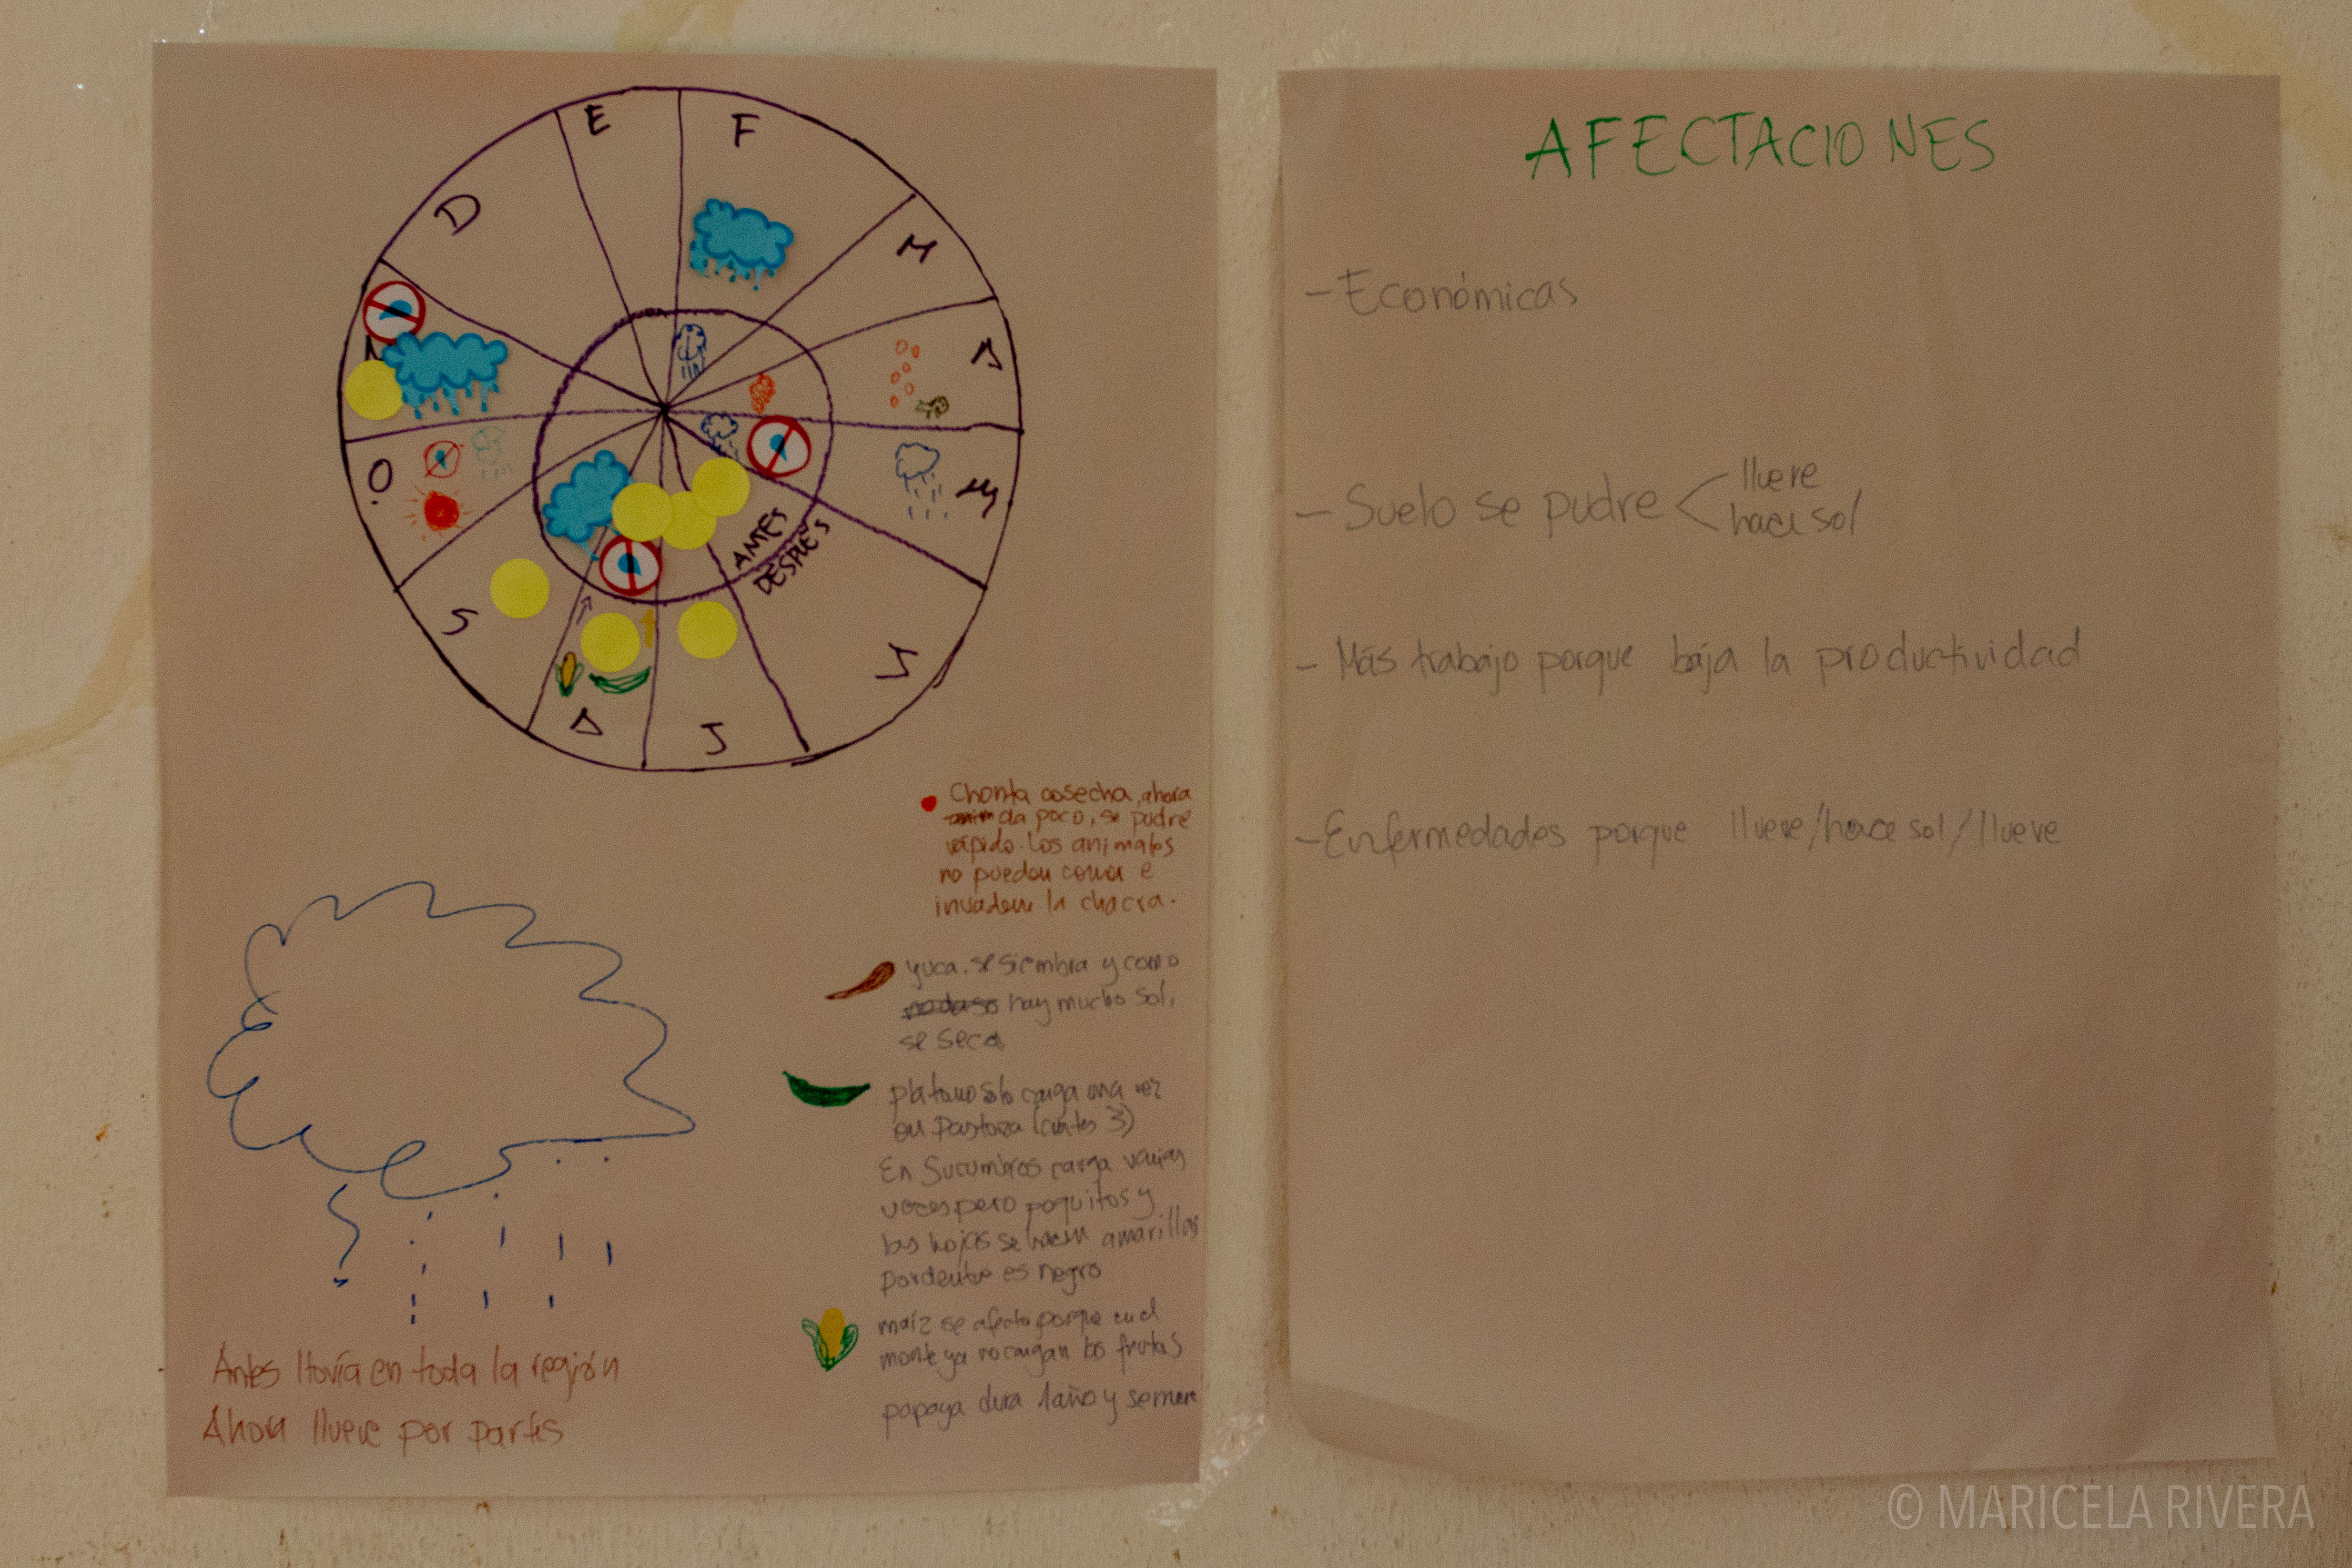 E
F
D
M
A
N
O
M
ANTES
DESPUÉS
S
J
A
J
Chonta cosecha, ahora
da poco, se pudre
rápido. Los animales
no pueden comer e
invaden la chacra.
yuca, se siembra y como
hay mucho sol,
se seca
plátano solo carga una vez
en Pastaza (antes 3)
En Sucumbíos carga varias
veces pero poquitos y
las hojas se hacen amarillas
por dentro es negro
maíz se afecta porque en el
monte ya no cargan los frutos
papaya dura 1 año y se muere
Antes llovía en toda la región
Ahora llueve por partes
AFECTACIONES
- Económicas
- Suelo se pudre < llueve
hace sol
- Más trabajo porque baja la productividad
- Enfermedades porque llueve/hace sol/llueve
© MARICELA RIVERA